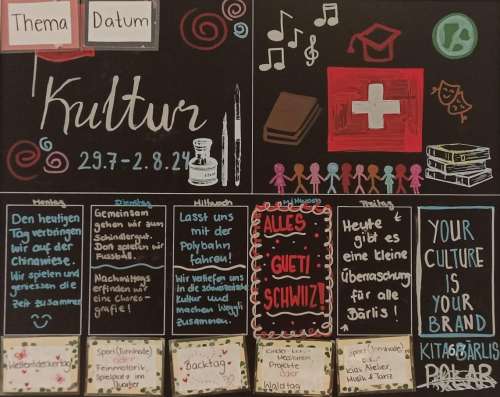 Thema
Datum
Kultur
29.7-2.8.24
Montag
Den heutigen
Tag verbringen
wir auf der
Chinawiese.
Wir spielen und
geniessen die
Zeit zusammen
Dienstag
Gemeinsam
gehen wir zum
Schindlergut.
Dort spielen wir
Fussball.
Nachmittags
erfinden wir
eine Choreo-
grafie!
Mittwoch
Lasst uns
mit der
Polybahn
fahren!
Wir vertiefen uns
in die schweizerische
Kultur und
machen Weggli
zusammen.
ALLES
GUETI
SCHWIIZ!
Freitag
Heute
gibt es
eine kleine
Überraschung
für alle
Bärlis!
YOUR
CULTURE
IS
YOUR
BRAND
KITA BÄRLIS
POLAR
Weltentdeckertag
Sport (Turnhalle)
oder
Feinmotorik
Backtag
Projekte
oder
Waldtag
Sport (Turnhalle)
Musik & Tanz